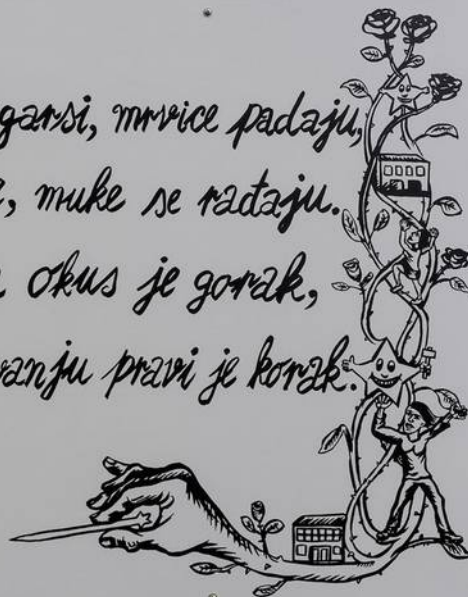 garsi, mrvice padaju,
, muke se rađaju.
okus je gorak,
vanju pravi je korak.